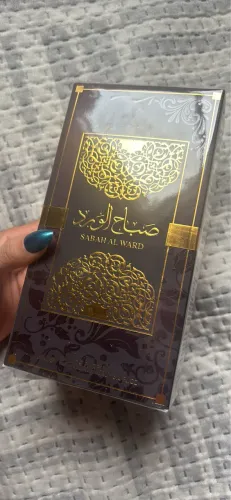 صباح الورد
SABAH AL WARD